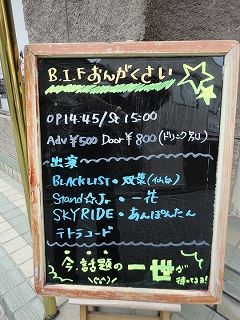 B.I.Fおんがくさい
OP14:45/St 15:00
Adv ¥500 Door ¥800(ドリンク別)
出演
BLACKLIST・双葉(仙台)
Stand☆Jr.・一花
SKYRIDE・あんぽんたん
テトラコード
今、話題の一世が
待ってるヨ!